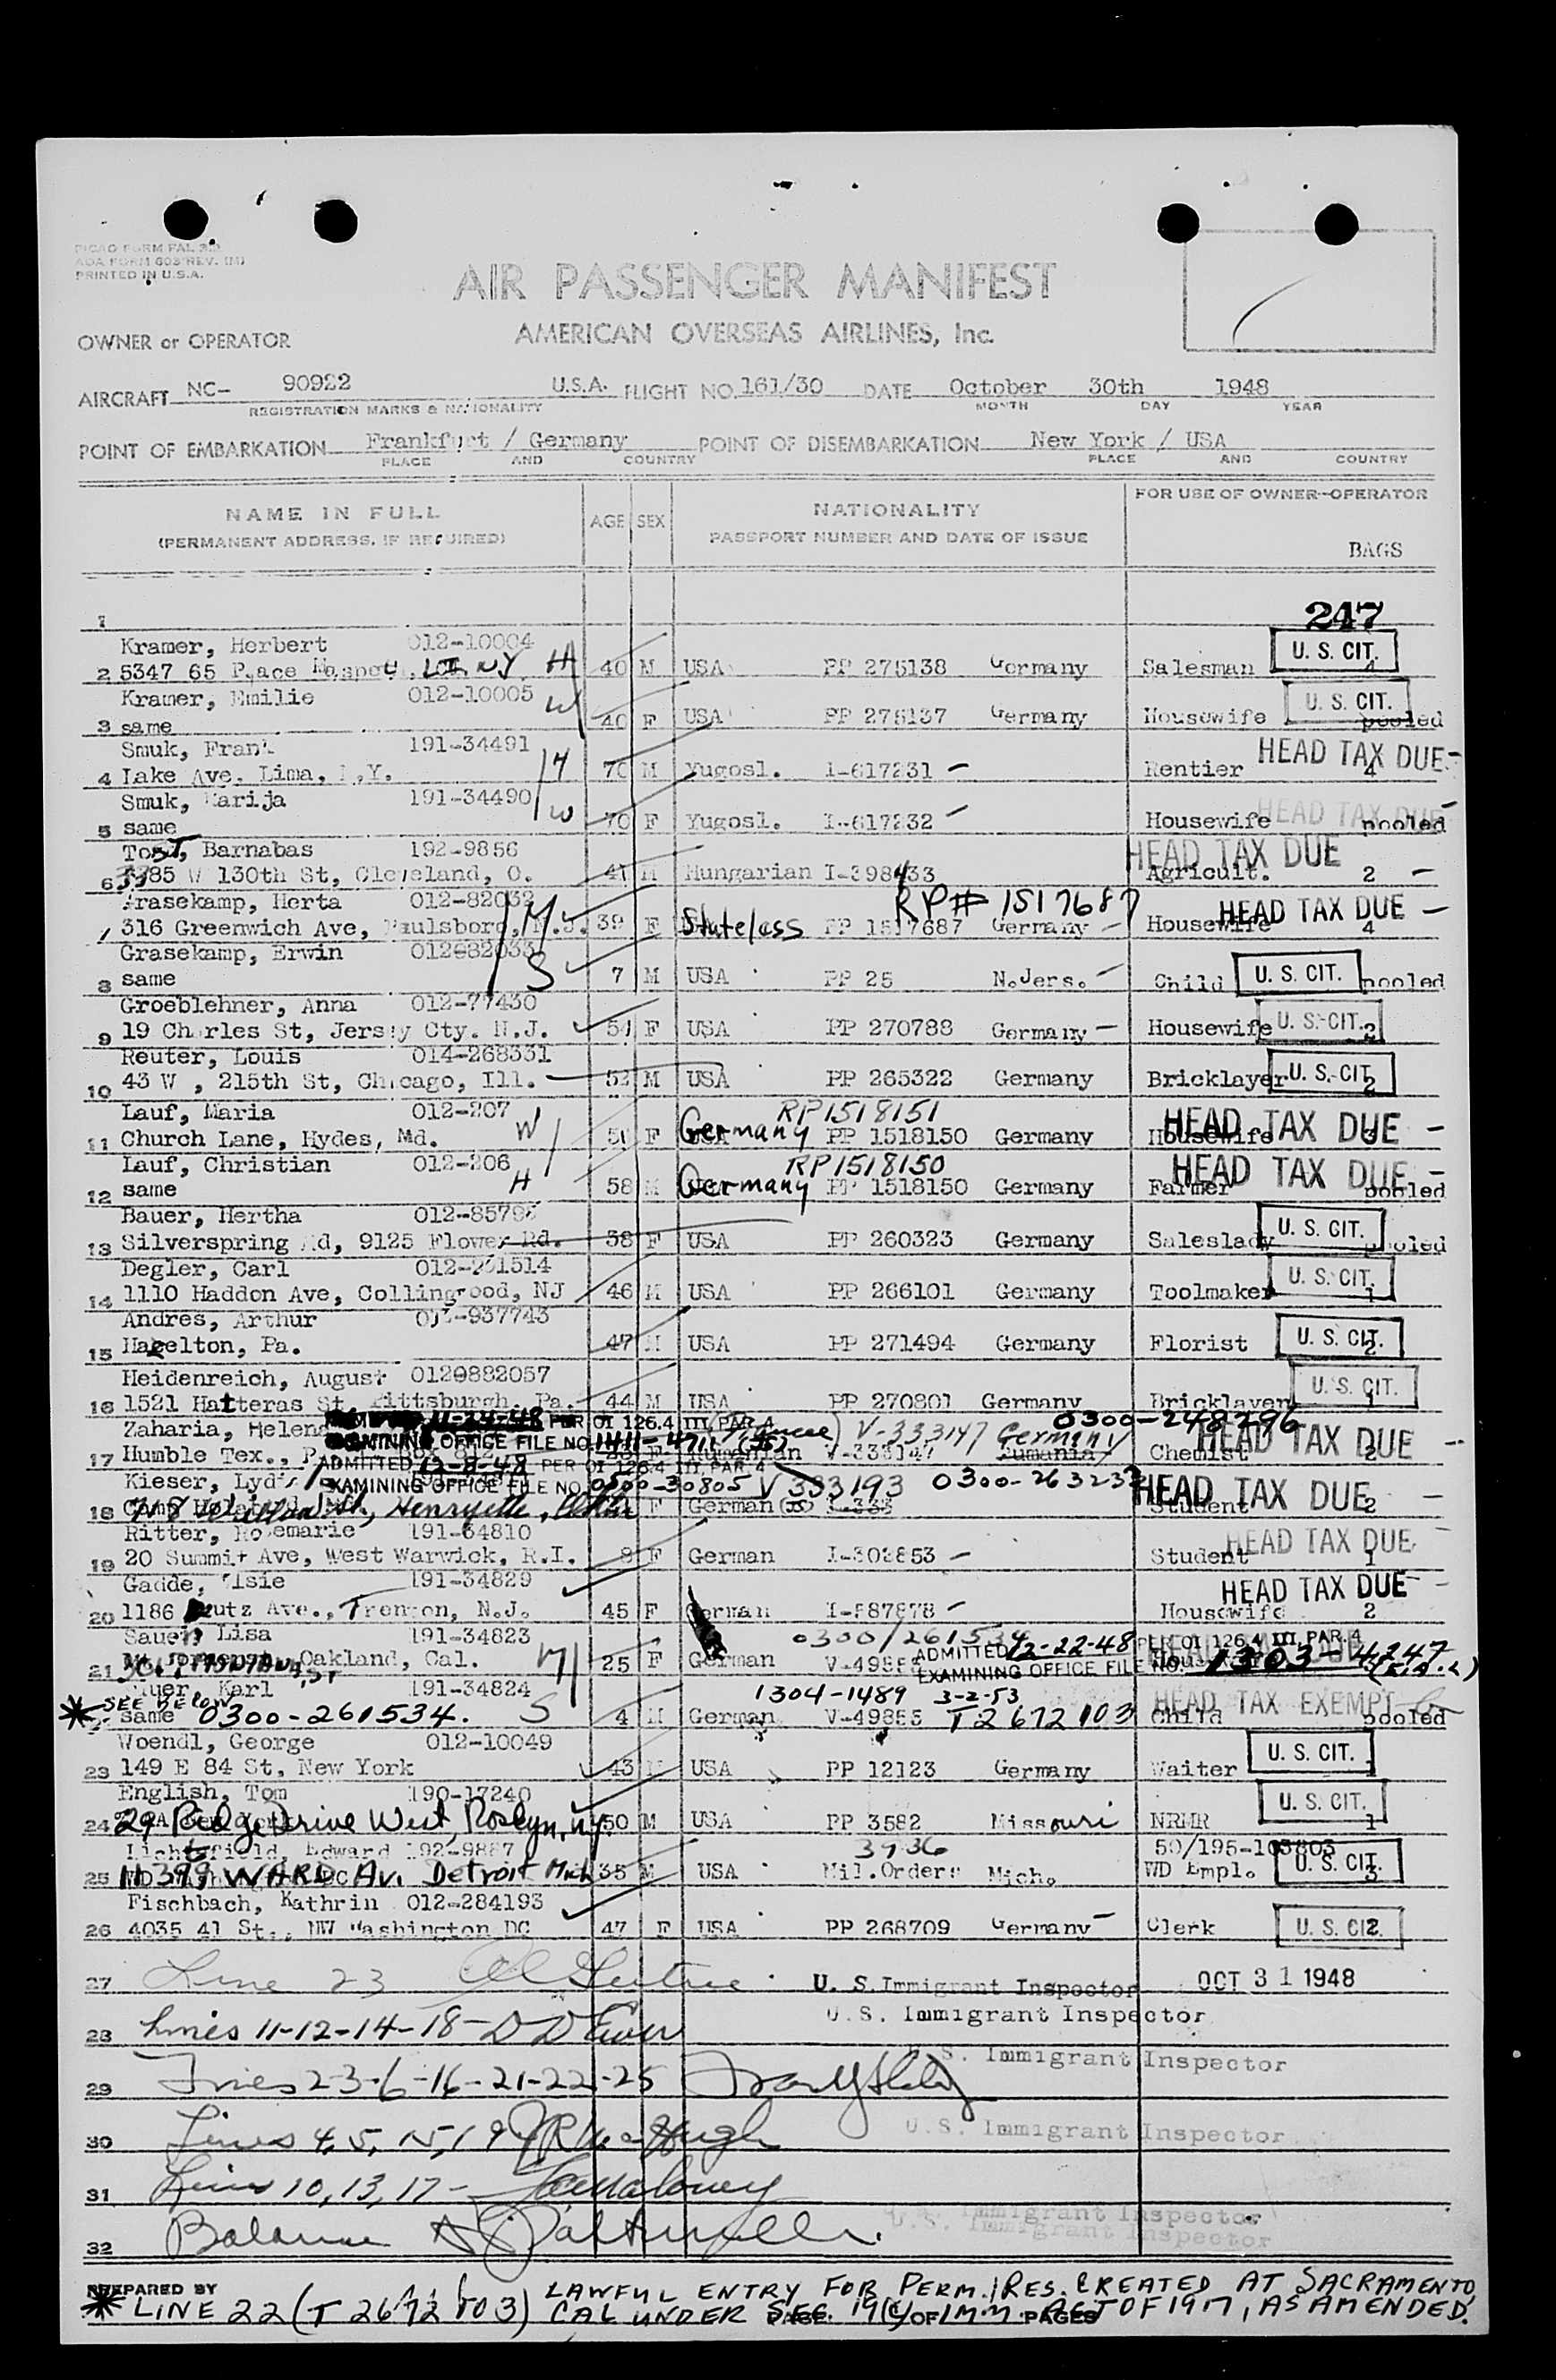 PICAO FORM FAL 3.2
AOA FORM 603 REV. (M)
PRINTED IN U.S.A.
AIR PASSENGER MANIFEST
AMERICAN OVERSEAS AIRLINES, Inc.
OWNER or OPERATOR
AIRCRAFT NC- 90922 U.S.A. FLIGHT NO. 161/30 DATE October 30th 1948
REGISTRATION MARKS & NATIONALITY MONTH DAY YEAR
POINT OF EMBARKATION Frankfurt / Germany POINT OF DISEMBARKATION New York / USA
PLACE AND COUNTRY PLACE AND COUNTRY
NAME IN FULL AGE SEX NATIONALITY FOR USE OF OWNER-OPERATOR
(PERMANENT ADDRESS, IF REQUIRED) PASSPORT NUMBER AND DATE OF ISSUE BAGS
1 247
Kramer, Herbert 012-10004 U. S. CIT.
2 5347 65 Place Maspeu, LI NY H 40 M USA PP 275138 Germany Salesman 4
Kramer, Emilie 012-10005 W U. S. CIT.
3 same 40 F USA PP 275137 Germany Housewife pooled
Smuk, Frank 191-34491 H HEAD TAX DUE -
4 Lake Ave. Lima, N.Y. 70 M Yugosl. I-617231 - Rentier 4
Smuk, Marija 191-34490 W HEAD TAX DUE -
5 same 70 F Yugosl. I-617232 - Housewife pooled
Barnabas 192-9856 HEAD TAX DUE
6 W 130th St, Cleveland, O. 41 M Hungarian I-398433 Agricult. 2 -
Grasekamp, Herta 012-82032 M RP# 1517687 HEAD TAX DUE -
316 Greenwich Ave, Paulsboro, N.J. 39 F Stateless PP 1517687 Germany - Housewife 4
Grasekamp, Erwin 012-82033 S
8 same 7 M USA PP 25 N.Jers. - Child U. S. CIT. pooled
Groeblehner, Anna 012-77430
9 19 Charles St, Jersey Cty. N.J. 54 F USA PP 270788 Germany - Housewife U. S. CIT. 2
Reuter, Louis 014-268331
10 43 W , 215th St, Chicago, Ill. 52 M USA PP 265322 Germany Bricklayer U. S. CIT. 2
Lauf, Maria 012-207 W RP1518151 HEAD TAX DUE -
11 Church Lane, Hydes, Md. 50 F Germany PP 1518150 Germany Housewife
Lauf, Christian 012-206 H RP1518150 HEAD TAX DUE -
12 same 58 M Germany PP 1518150 Germany Farmer pooled
Bauer, Hertha U. S. CIT.
13 Silverspring Md, 9125 Flower Rd. 58 F USA PP 260323 Germany Saleslady pooled
Degler, Carl 012-201514 U. S. CIT.
14 1110 Haddon Ave, Collingwood, NJ 46 M USA PP 266101 Germany Toolmaker 1
Andres, Arthur 013-937743
15 Hazelton, Pa. 47 M USA PP 271494 Germany Florist U. S. CIT. 2
Heidenreich, August 012-882057 U. S. CIT.
16 1521 Hatteras St. Pittsburgh, Pa. 44 M USA PP 270801 Germany Bricklayer 1
Zaharia, Helene 11-24-48 PER OI 126.4 III, PAR. 4 V-333147 Germany 0300-248296
EXAMINING OFFICE FILE NO. 1411-4711 HEAD TAX DUE -
17 Humble Tex., Rumanian V-333147 Rumania Chemist 2
ADMITTED 12-8-48 PER OI 126.4 III, PAR. 4
Kieser, Lydia EXAMINING OFFICE FILE NO. 0500-30805 V 333193 0300-263232 HEAD TAX DUE -
18 Henryette, Okla F German I-333 Student 2
Ritter, Rosemarie 191-64810 HEAD TAX DUE
19 20 Summit Ave, West Warwick, R.I. 8 F German I-303853 - Student 1
Gadde, Elsie 191-34829 HEAD TAX DUE -
20 1186 Deutz Ave., Trenton, N.J. 45 F German I-587878 - Housewife 2
Sauer, Lisa 191-34823 0300/261534 ADMITTED 12-22-48 PER OI 126.4 III, PAR. 4
21 Oakland, Cal. M 25 F German EXAMINING OFFICE FILE NO. 1303-4247
Sauer, Karl 191-34824 1304-1489 3-2-53
* SEE BELOW same 0300-261534. S 4 M German V-49855 T2672103 Child HEAD TAX EXEMPT pooled
Woendl, George 012-10049
23 149 E 84 St, New York 43 M USA PP 12123 Germany Waiter U. S. CIT. 1
English, Tom 190-17240 U. S. CIT.
24 29 Ridge Drive West, Roslyn, N.Y. 50 M USA PP 3582 Missouri NRMR 1
Lichtsfield, Edward 192-9887 3936 50/195-103803
25 11399 WARD Av. Detroit Mich 35 M USA Mil.Orders Mich. WD Empl. U. S. CIT. 3
Fischbach, Kathrin 012-284193
26 4035 41 St., NW Washington DC 47 F USA PP 268709 Germany - Clerk U. S. CIT. 2
27 Line 23 U. S. Immigrant Inspector OCT 31 1948
28 Lines 11-12-14-18- U. S. Immigrant Inspector
29 Lines 2-3-6-16-21-22-25 U. S. Immigrant Inspector
30 Lines 4, 5, 15, 19 U. S. Immigrant Inspector
31 Lines 10, 13, 17 -
32 Balance U. S. Immigrant Inspector
PREPARED BY
* LINE 22 (T 2672103) LAWFUL ENTRY FOR PERM. RES. CREATED AT SACRAMENTO,
CAL UNDER SEC. 19(c) OF IMM. ACT OF 1917, AS AMENDED.
PAGE OF PAGES